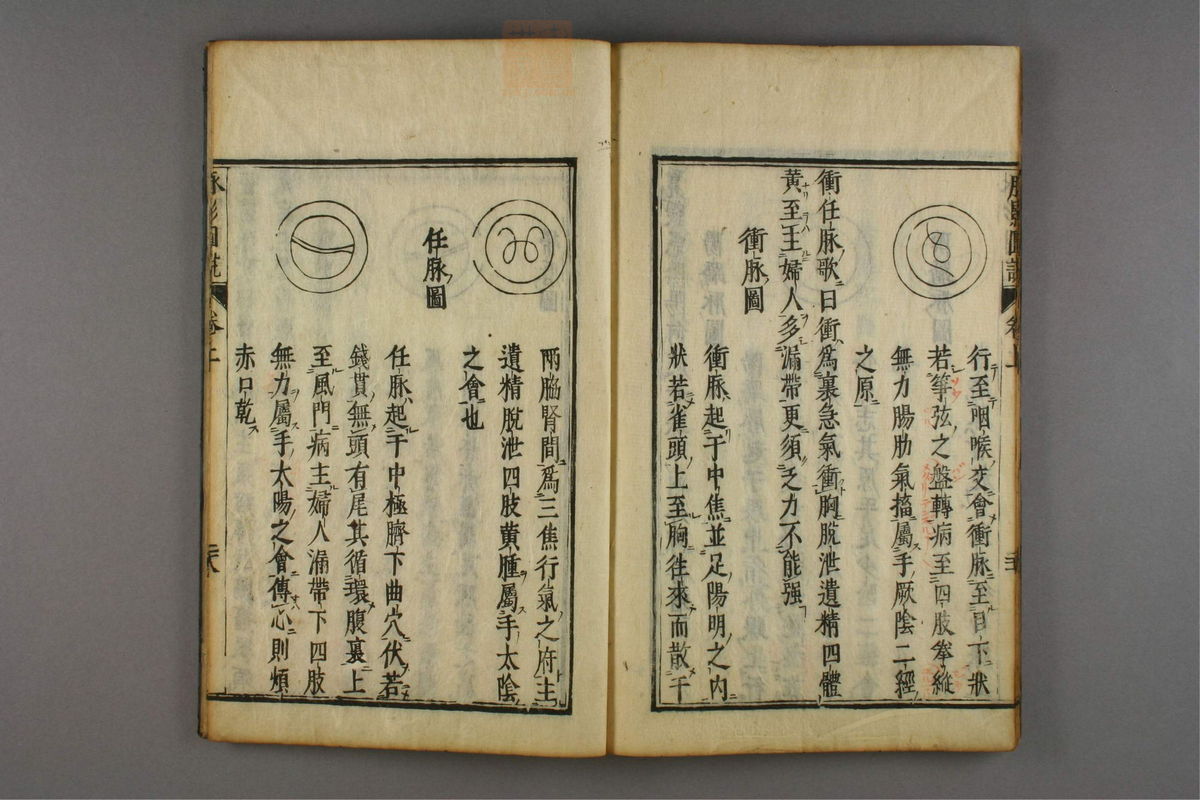 行至咽喉交會衝脉至目下狀
若箏弦之盤轉病至四肢拳縱
無力腸肋氣搐屬手厥陰二經
之原
衝任脉歌曰衝爲裏急氣衝胸脫泄遺精四體
黃至王婦人多漏帶更須乏力不能强
衝脉圖
衝脉起于中焦並足陽明之內
狀若雀頭上至胸往來而散于
兩腦腎間爲三焦行氣之府主
遺精脫泄四肢黃腫屬手太陰
之會也
任脉圖
任脉起于中極臍下曲穴伏若
錢貫無頭有尾其循環腹裏上
至風門病主婦人漏帶下四肢
無力屬手太陽之會傳心則煩
赤口乾
脉影圖説 卷上